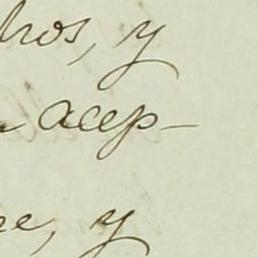 hos, y
acep-
re, y